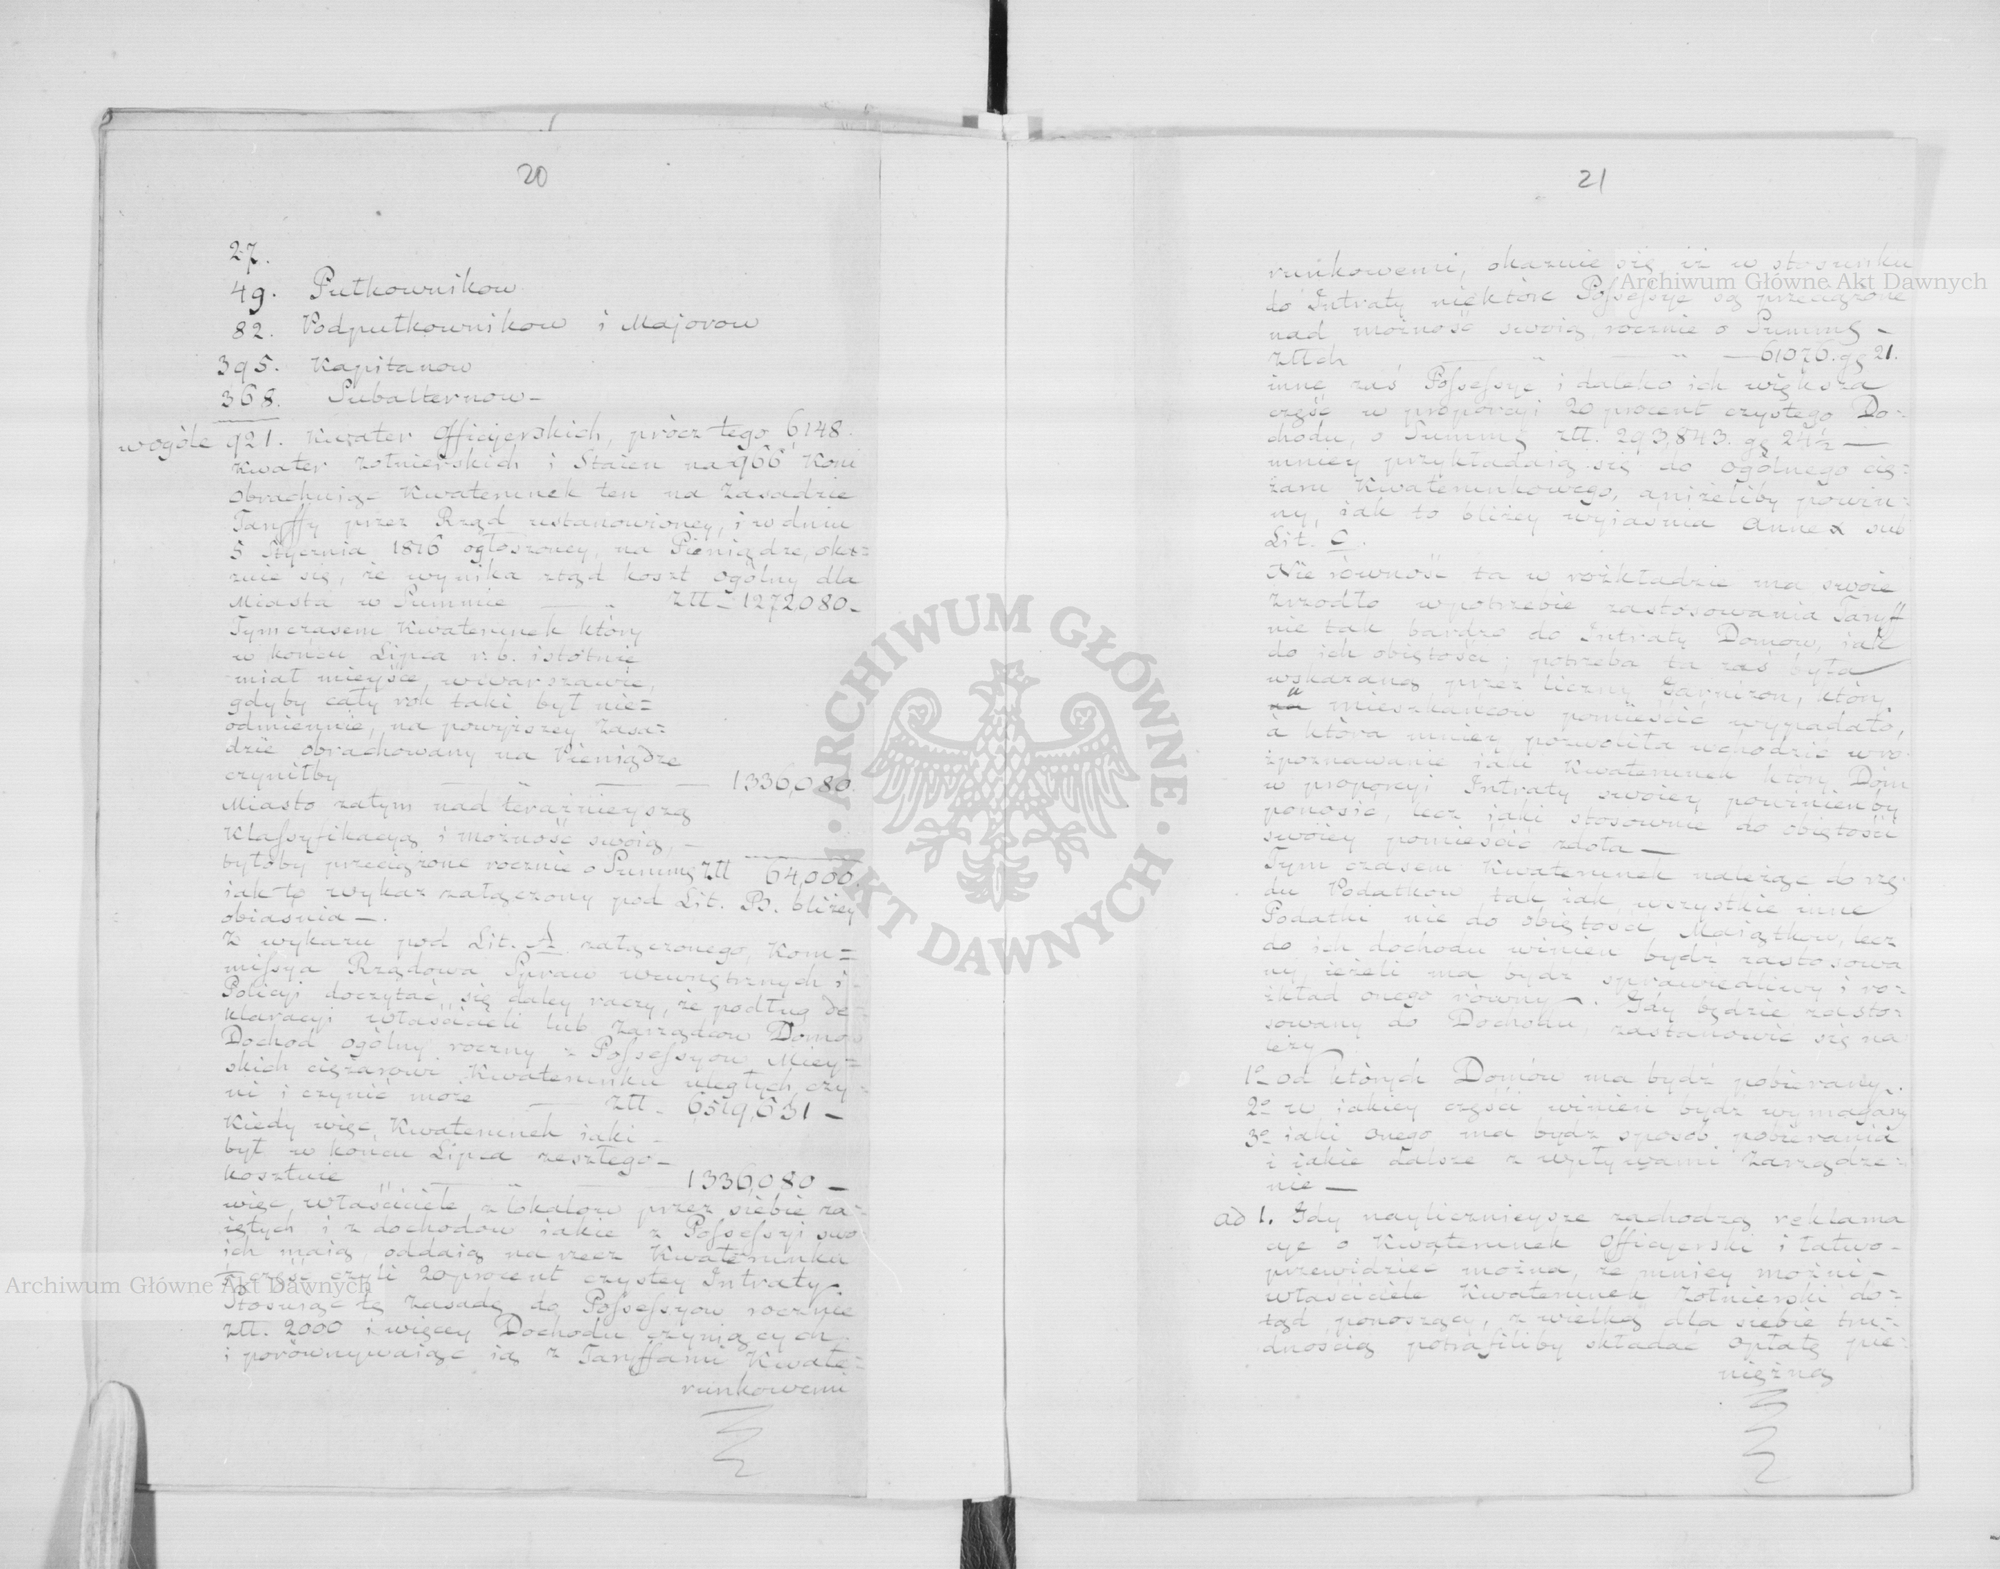 20
27.
49. Pułkownikow
82. Podpułkownikow i Majorow
395. Kapitanow
368. Subalternow —
wogóle 921. Kwater Officyerskich, prócz tego 6148.
Kwater żołnierskich i Staien na 966 Koni
obrachuiąc Kwaterunek ten na Zasadzie
Taryffy przez Rząd ustanowioney, i w dniu
5 Stycznia 1816 ogłoszoney, na Pieniądze, oka=
zuie się, że wynika ztąd koszt ogólny dla
Miasta w Summie — " Złł — 1272080 —
Tymczasem Kwaterunek który
w końcu Lipca r. b. istotnie
miał mieysce, w Warszawie,
gdyby cały rok taki był nie=
odmiennie, na powyższey Zasa=
dzie obrachowany na Pieniądze
czyniłby — — — 1336,080.
Miasto zatym nad teraźnieyszą
Klassyfikacyą i możność swoią, —
byłoby przeciążone rocznie o Summę Złł 64,000.
iak to wykaz załączony pod Lit. B. bliżey
obiaśnia —.
Z wykazu pod Lit. A załączonego, Kom=
missya Rządowa Spraw wewnętrznych i
Policyi doczytać się daley raczy, że podług de=
klaracyi właścicieli lub Zarządcow Domow
Dochód ogólny roczny z Possessyow Miey=
skich ciężarowi Kwaterunku uległych czy=
ni i czynić może — Złł — 6519,631 —
Kiedy więc Kwaterunek iaki —
był w końcu Lipca zeszłego —
kosztuie " — — 1336,080 —
więc właściciele z lokalow przez siebie za=
iętych i z dochodow iakie z Possessyi swo
ich maią, oddaią na rzecz Kwaterunku
część czyli 20 procent czystey Intraty.
Stosuiąc tę Zasadę do Possessyow rocznie
złł. 2000 i więcey Dochodu czyniących
i porównywaiąc ią z Taryffami Kwate=
runkowemi
21
runkowemi, okazuie się iż w stosunku
do Intraty niektóre Possessye są przeciążone
nad możność swoią rocznie o Summę —
Złłch — " " — 61076. gr 21.
inne zaś Possessye i daleko ich większa
część w proporcyi 20 procent czystego Do=
chodu, o Summę złł. 293,843. gr 24½ —
mniey przykładaią się do ogólnego cię=
żaru Kwaterunkowego, aniżeliby powin=
ny, iak to bliżey wyiaśnia annex sub
Lit. C.
Nie równość ta w rozkładzie ma swoie
zrzodło w potrzebie zastosowania Taryff
nie tak bardzo do Intraty Domow, iak
do ich obiętości; potrzeba ta zaś była
wskazaną przez liczny Garnizon, który
u mieszkańcow pomieścić wypadało,
a która mniey pozwoliła wchodzić w ro=
zpoznawanie iaki Kwaterunek który Dom
w proporcyi Intraty swoiey powinienby
ponosić, lecz iaki stosownie do obiętości
swoiey pomieścić zdoła —
Tym czasem Kwaterunek należąc do rzę=
du Podatkow tak iak wszystkie inne
Podatki nie do obiętości Maiątkow, lecz
do ich dochodu winien bydz zastosowa
ny, ieżeli ma bydz sprawiedliwy i ro=
zkład onego równy —. Gdy będzie zasto=
sowany do Dochodu, zastanowić się na
leży
1o od których Domów ma bydź pobierany.
2o w iakiey części winien bydz wymagany
3o iaki onego ma bydz sposób pobierania
i iakie dalsze z wpływami Zarządze=
nie —
ad 1. Gdy naylicznieysze zachodzą reklama
cye o Kwaterunek Officyerski i łatwo —
przewidzieć można, że mniey możni —
właściciele Kwaterunek Żołnierski do=
tąd ponoszący, z wielką dla siebie tru=
dnością potrafiliby składać opłatę pie=
niężną
Archiwum Główne Akt Dawnych
Archiwum Główne Akt Dawnych
ARCHIWUM GŁÓWNE AKT DAWNYCH